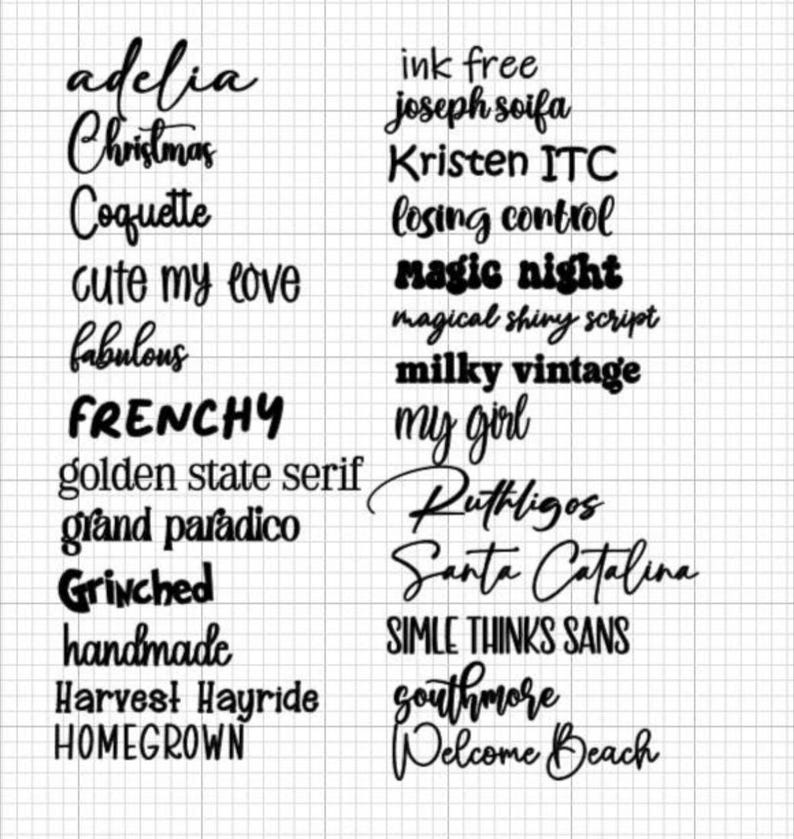 adelia
Christmas
Coquette
cute my love
fabulous
FRENCHY
golden state serif
grand paradico
Grinched
handmade
Harvest Hayride
HOMEGROWN
ink free
joseph soifa
Kristen ITC
losing control
magic night
magical shiny script
milky vintage
my girl
Ruthligos
Santa Catalina
SIMLE THINKS SANS
southmore
Welcome Beach